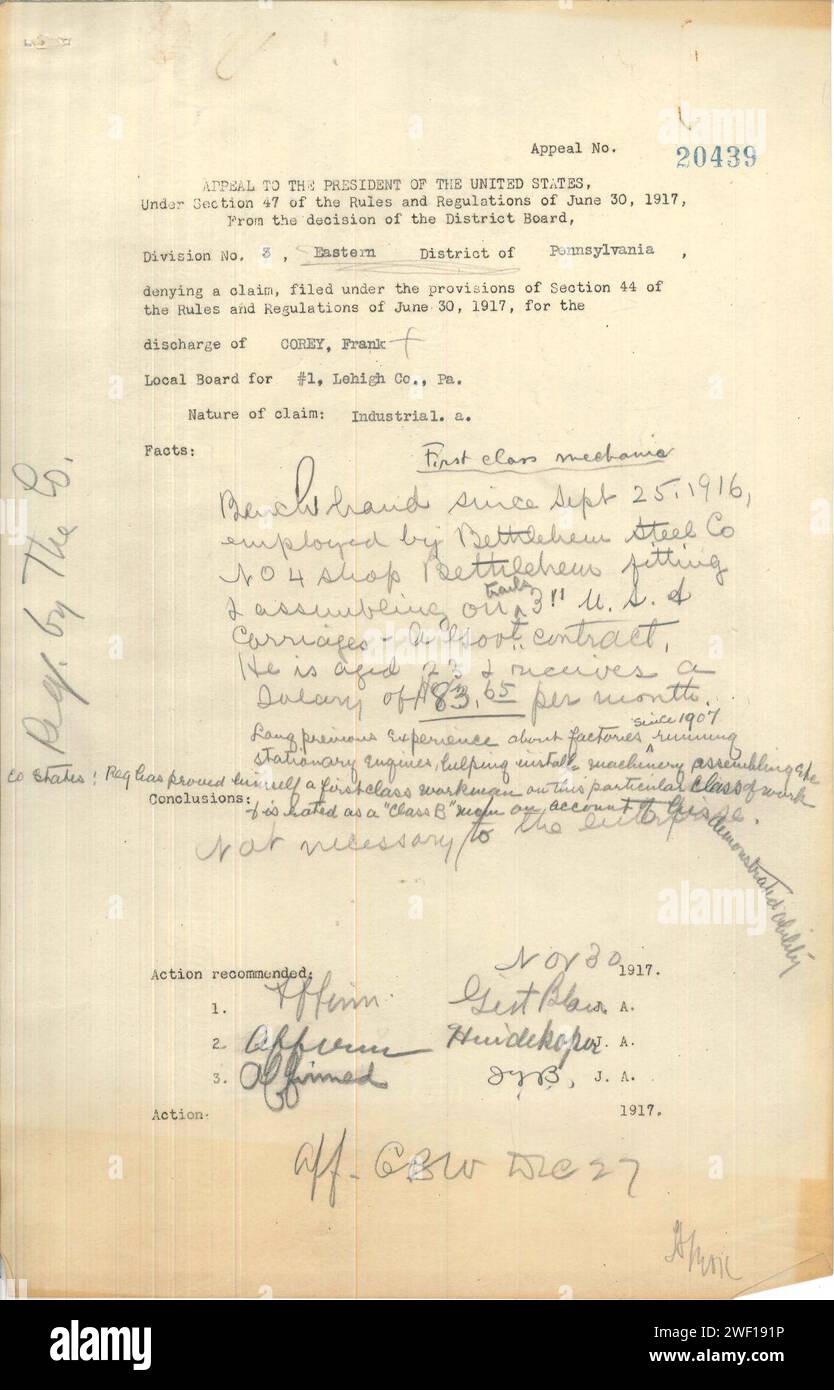 Appeal No. 20439
APPEAL TO THE PRESIDENT OF THE UNITED STATES,
Under Section 47 of the Rules and Regulations of June 30, 1917,
From the decision of the District Board,
Division No. 3 , Eastern District of Pennsylvania ,
denying a claim, filed under the provisions of Section 44 of
the Rules and Regulations of June 30, 1917, for the
discharge of COREY, Frank
Local Board for #1, Lehigh Co., Pa.
Nature of claim: Industrial. a.
Facts:
First class mechanic
Bench hand since Sept 25, 1916,
employed by Bethlehem Steel Co
No 4 shop Bethlehem fitting
& assembling on trails 3" U. S. &
Carriages - A Govt. contract.
He is aged 23 & receives a
Salary of $83.65 per month.
Long previous experience about factories since 1907 running
stationary engines, helping install machinery assembling etc
Co states: Reg has proved himself a first class workman on this particular class of work
& is rated as a "Class B" man on account of his demonstrated ability
Req. by The Co.
Conclusions:
Not necessary to the enterprise.
Nov 30 1917.
Action recommended:
1. Affirm. Gist Blair J. A.
2. Affirm Huidekoper J. A.
3. Affirmed J. A.
Action. 1917.
Aff- C.B.W Dec 27
alamy
a
alamy
Image ID: 2WF191P
www.alamy.com